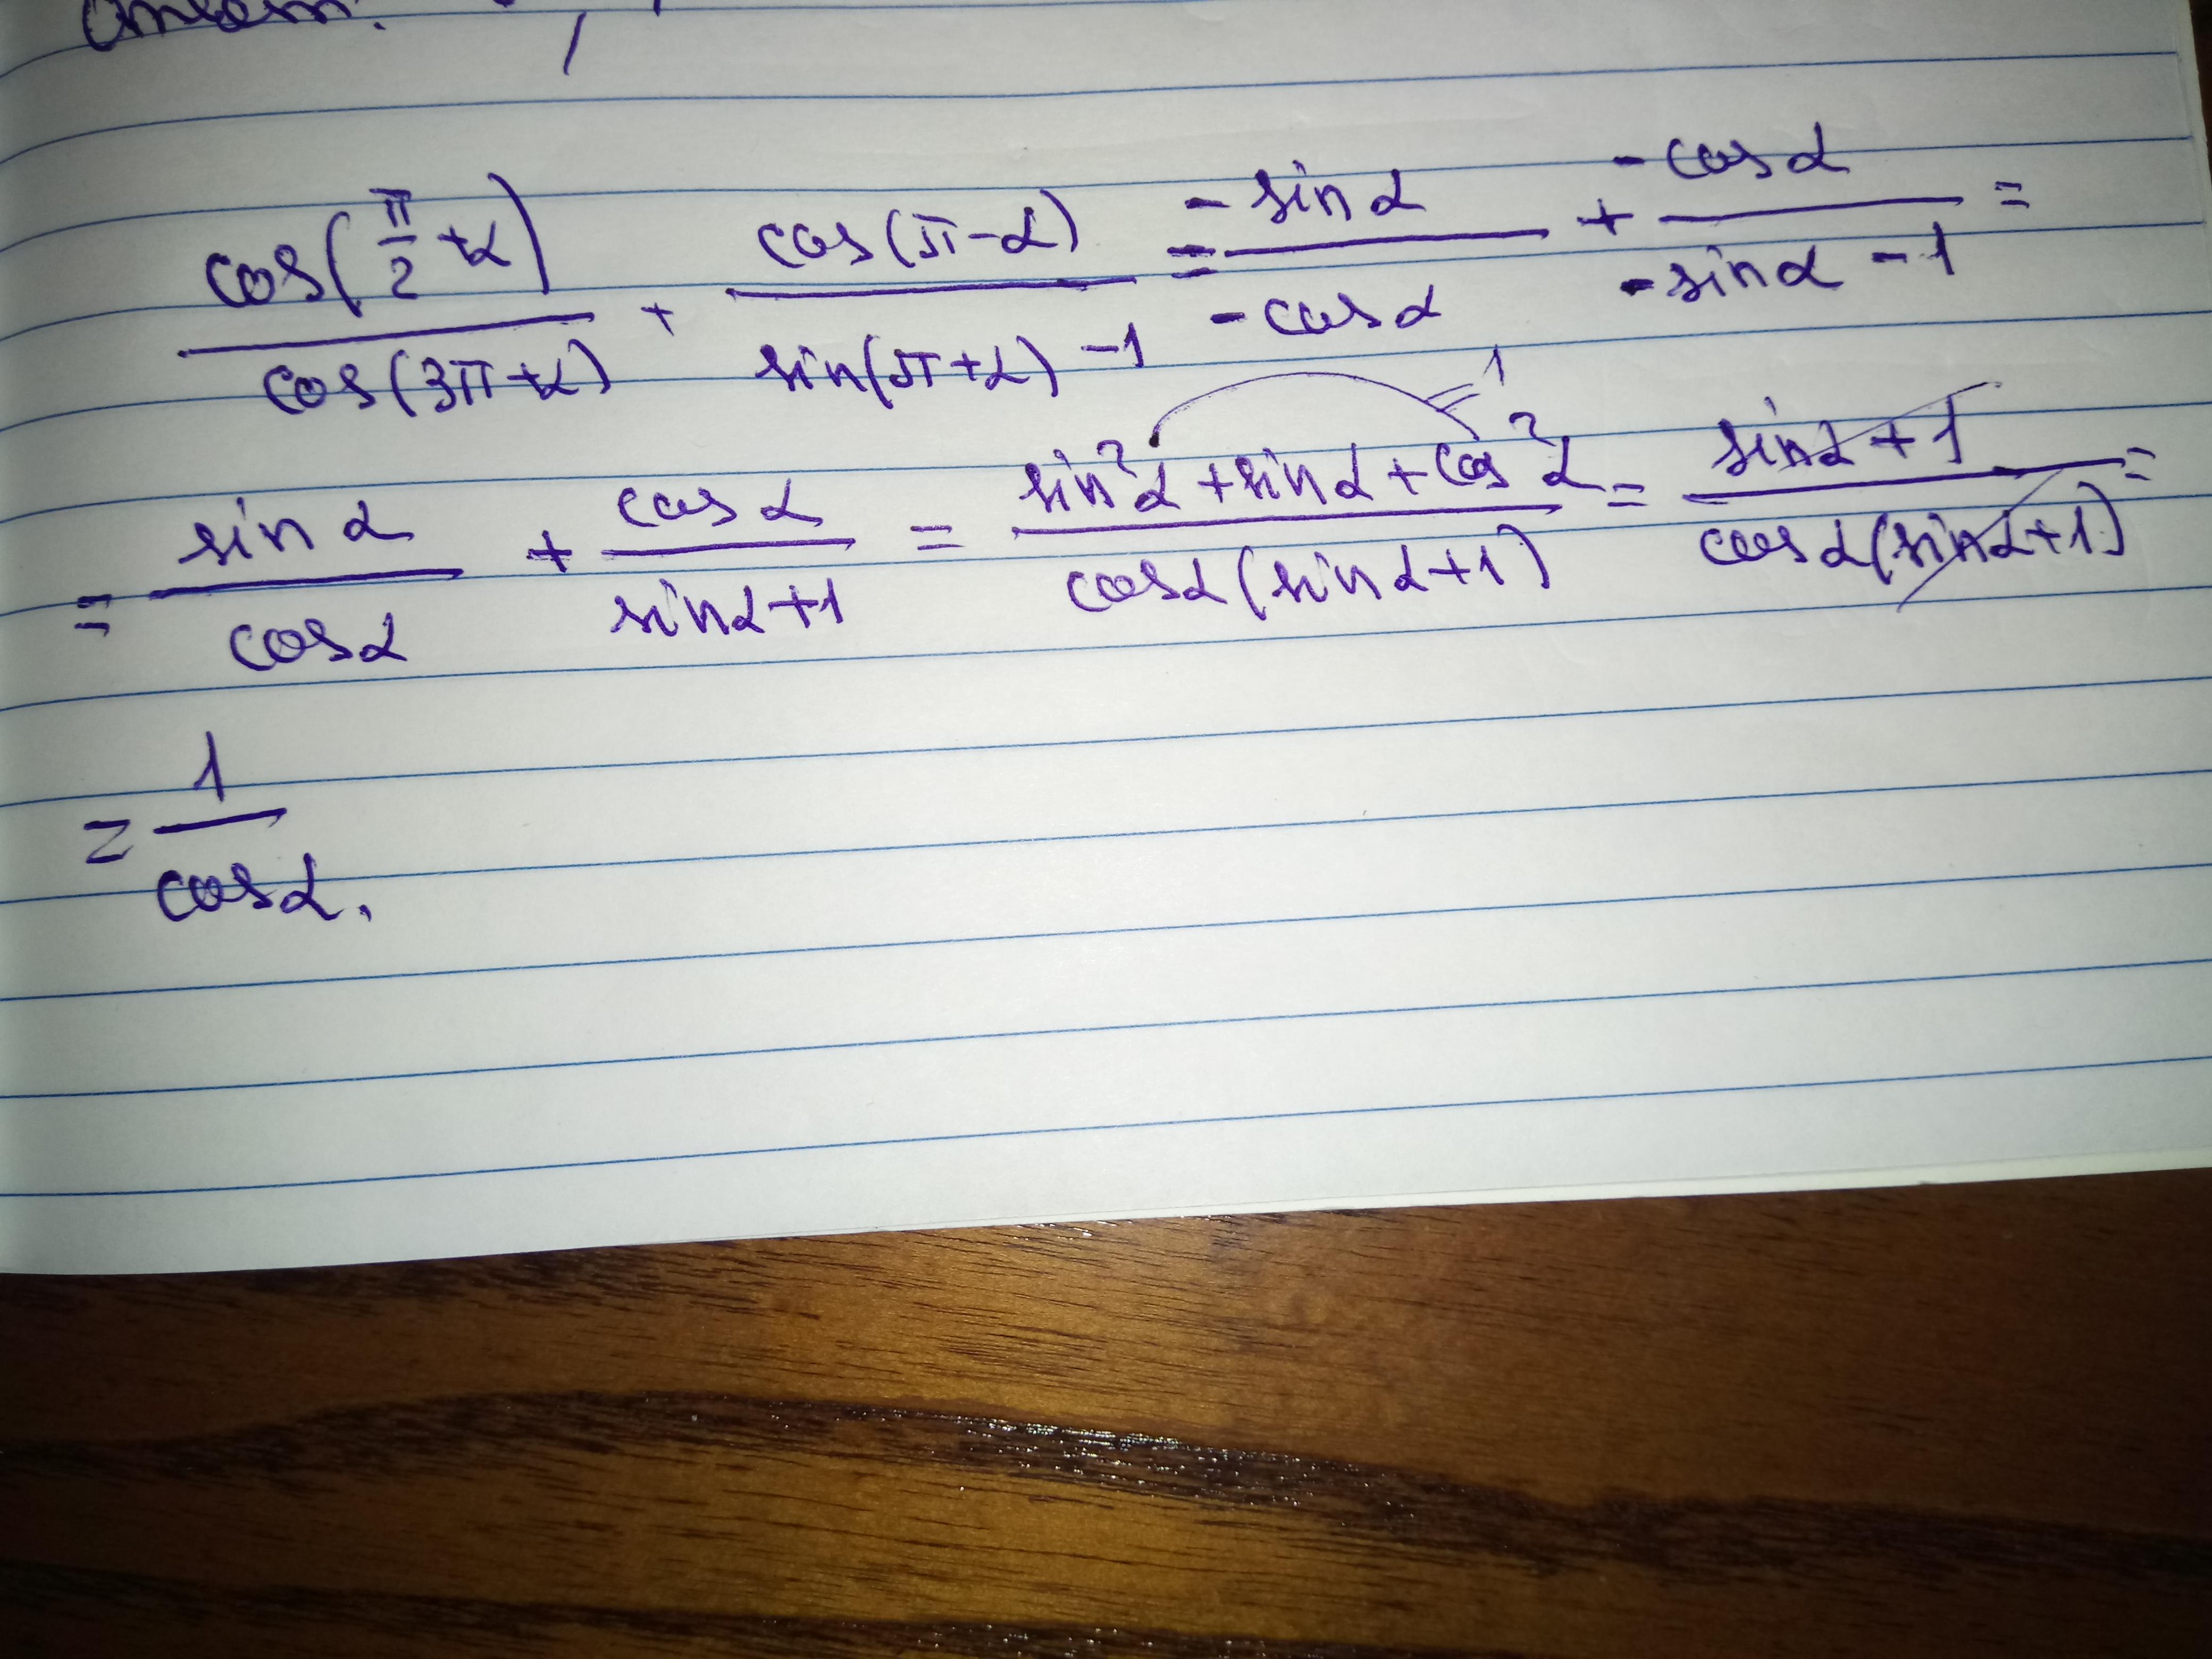 cos(π/2+α)/cos(3π+α) + cos(π-α)/sin(π+α)-1 = -sinα/-cosα + -cosα/-sinα-1 =
= sinα/cosα + cosα/sinα+1 = sin²α+sinα+cos²α/cosα(sinα+1) = sinα+1/cosα(sinα+1) =
=1
= 1/cosα.